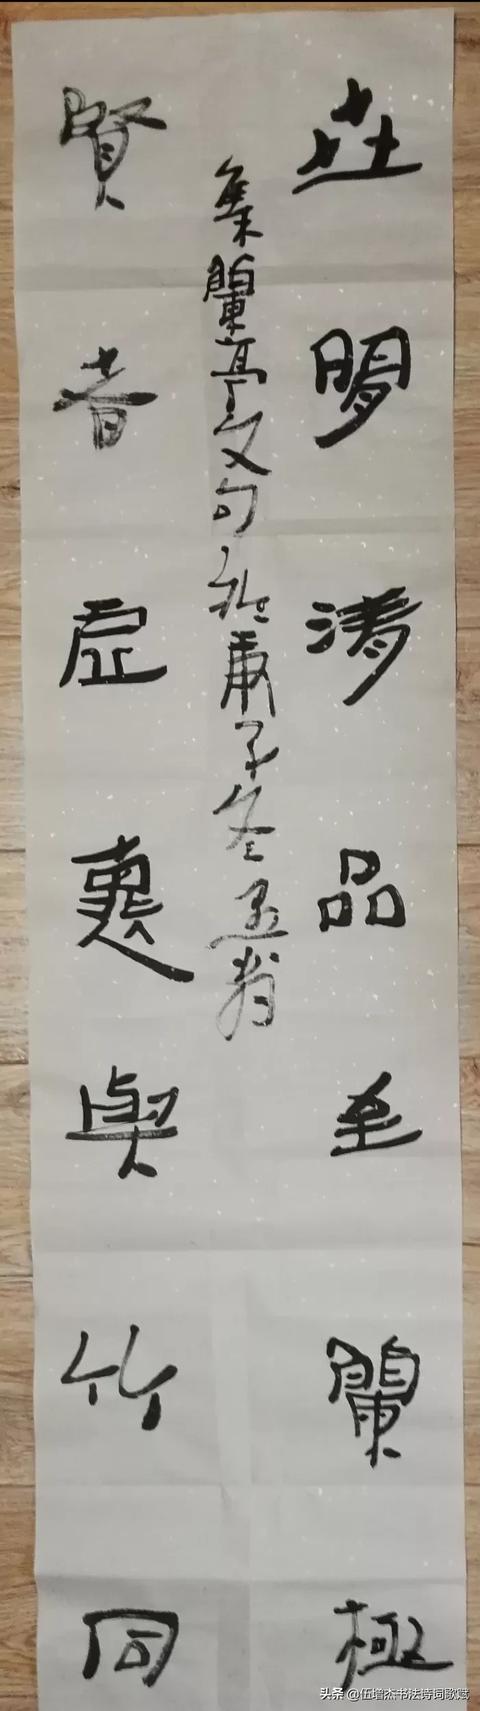 世間清品至蘭極
集蘭亭文句於庚子冬
賢者虛懷與竹同
头条 @伍增杰书法诗词歌赋